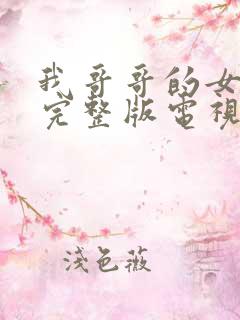 我哥哥的女
完整版電視
淺色薇